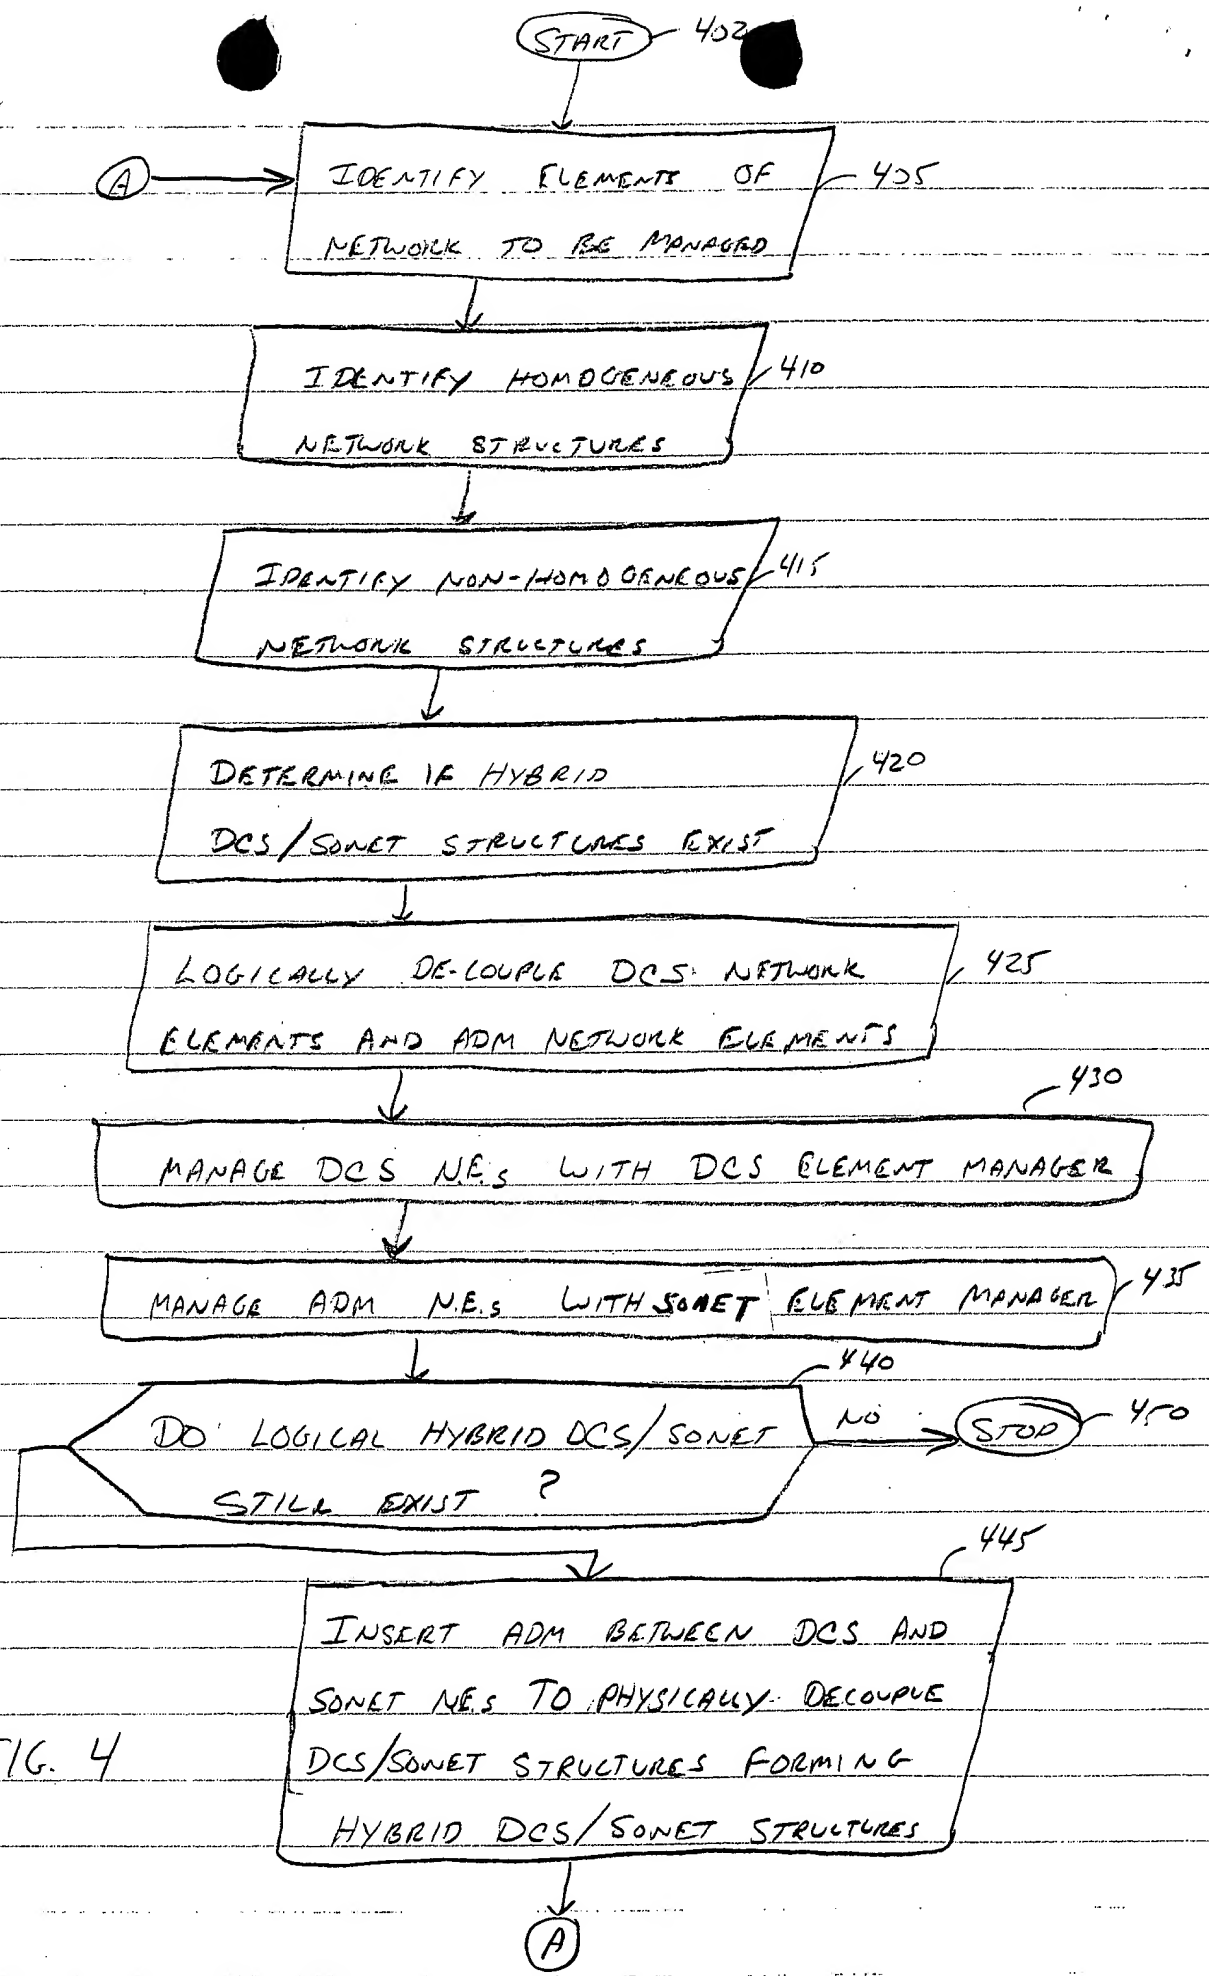 START 402
A
IDENTIFY ELEMENTS OF 405
NETWORK TO BE MANAGED
IDENTIFY HOMOGENEOUS 410
NETWORK STRUCTURES
IDENTIFY NON-HOMOGENEOUS 415
NETWORK STRUCTURES
DETERMINE IF HYBRID 420
DCS/SONET STRUCTURES EXIST
LOGICALLY DE-COUPLE DCS NETWORK 425
ELEMENTS AND ADM NETWORK ELEMENTS
430
MANAGE DCS N.E.s WITH DCS ELEMENT MANAGER
MANAGE ADM N.E.s WITH SONET ELEMENT MANAGER 435
440
DO LOGICAL HYBRID DCS/SONET NO STOP 450
STILL EXIST ?
445
INSERT ADM BETWEEN DCS AND
SONET N.E.s TO PHYSICALLY DECOUPLE
DCS/SONET STRUCTURES FORMING
HYBRID DCS/SONET STRUCTURES
IG. 4
A